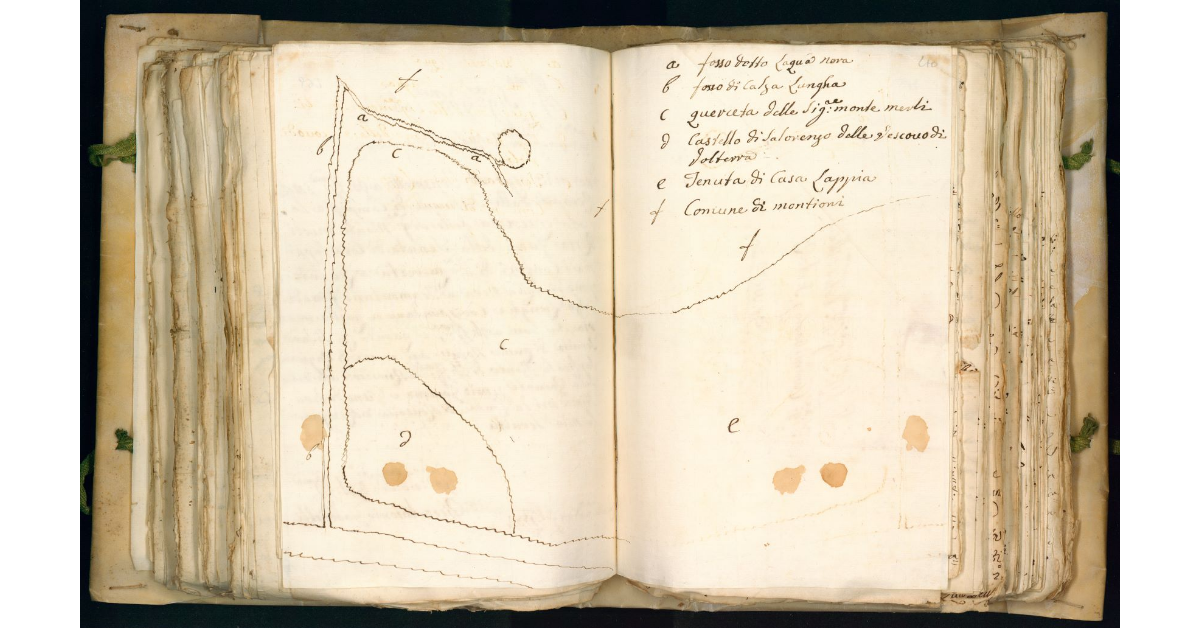 f
a
b
c
a
f
c
d
b
a fosso detto Laqua nora
b fosso di Calza Lungha
c querceta delle Sig.re monte merli
d Castello di Salorenzo delle Vescouo di
Volterra
e Tenuta di Casa Lappia
f Comune di montioni
f
e